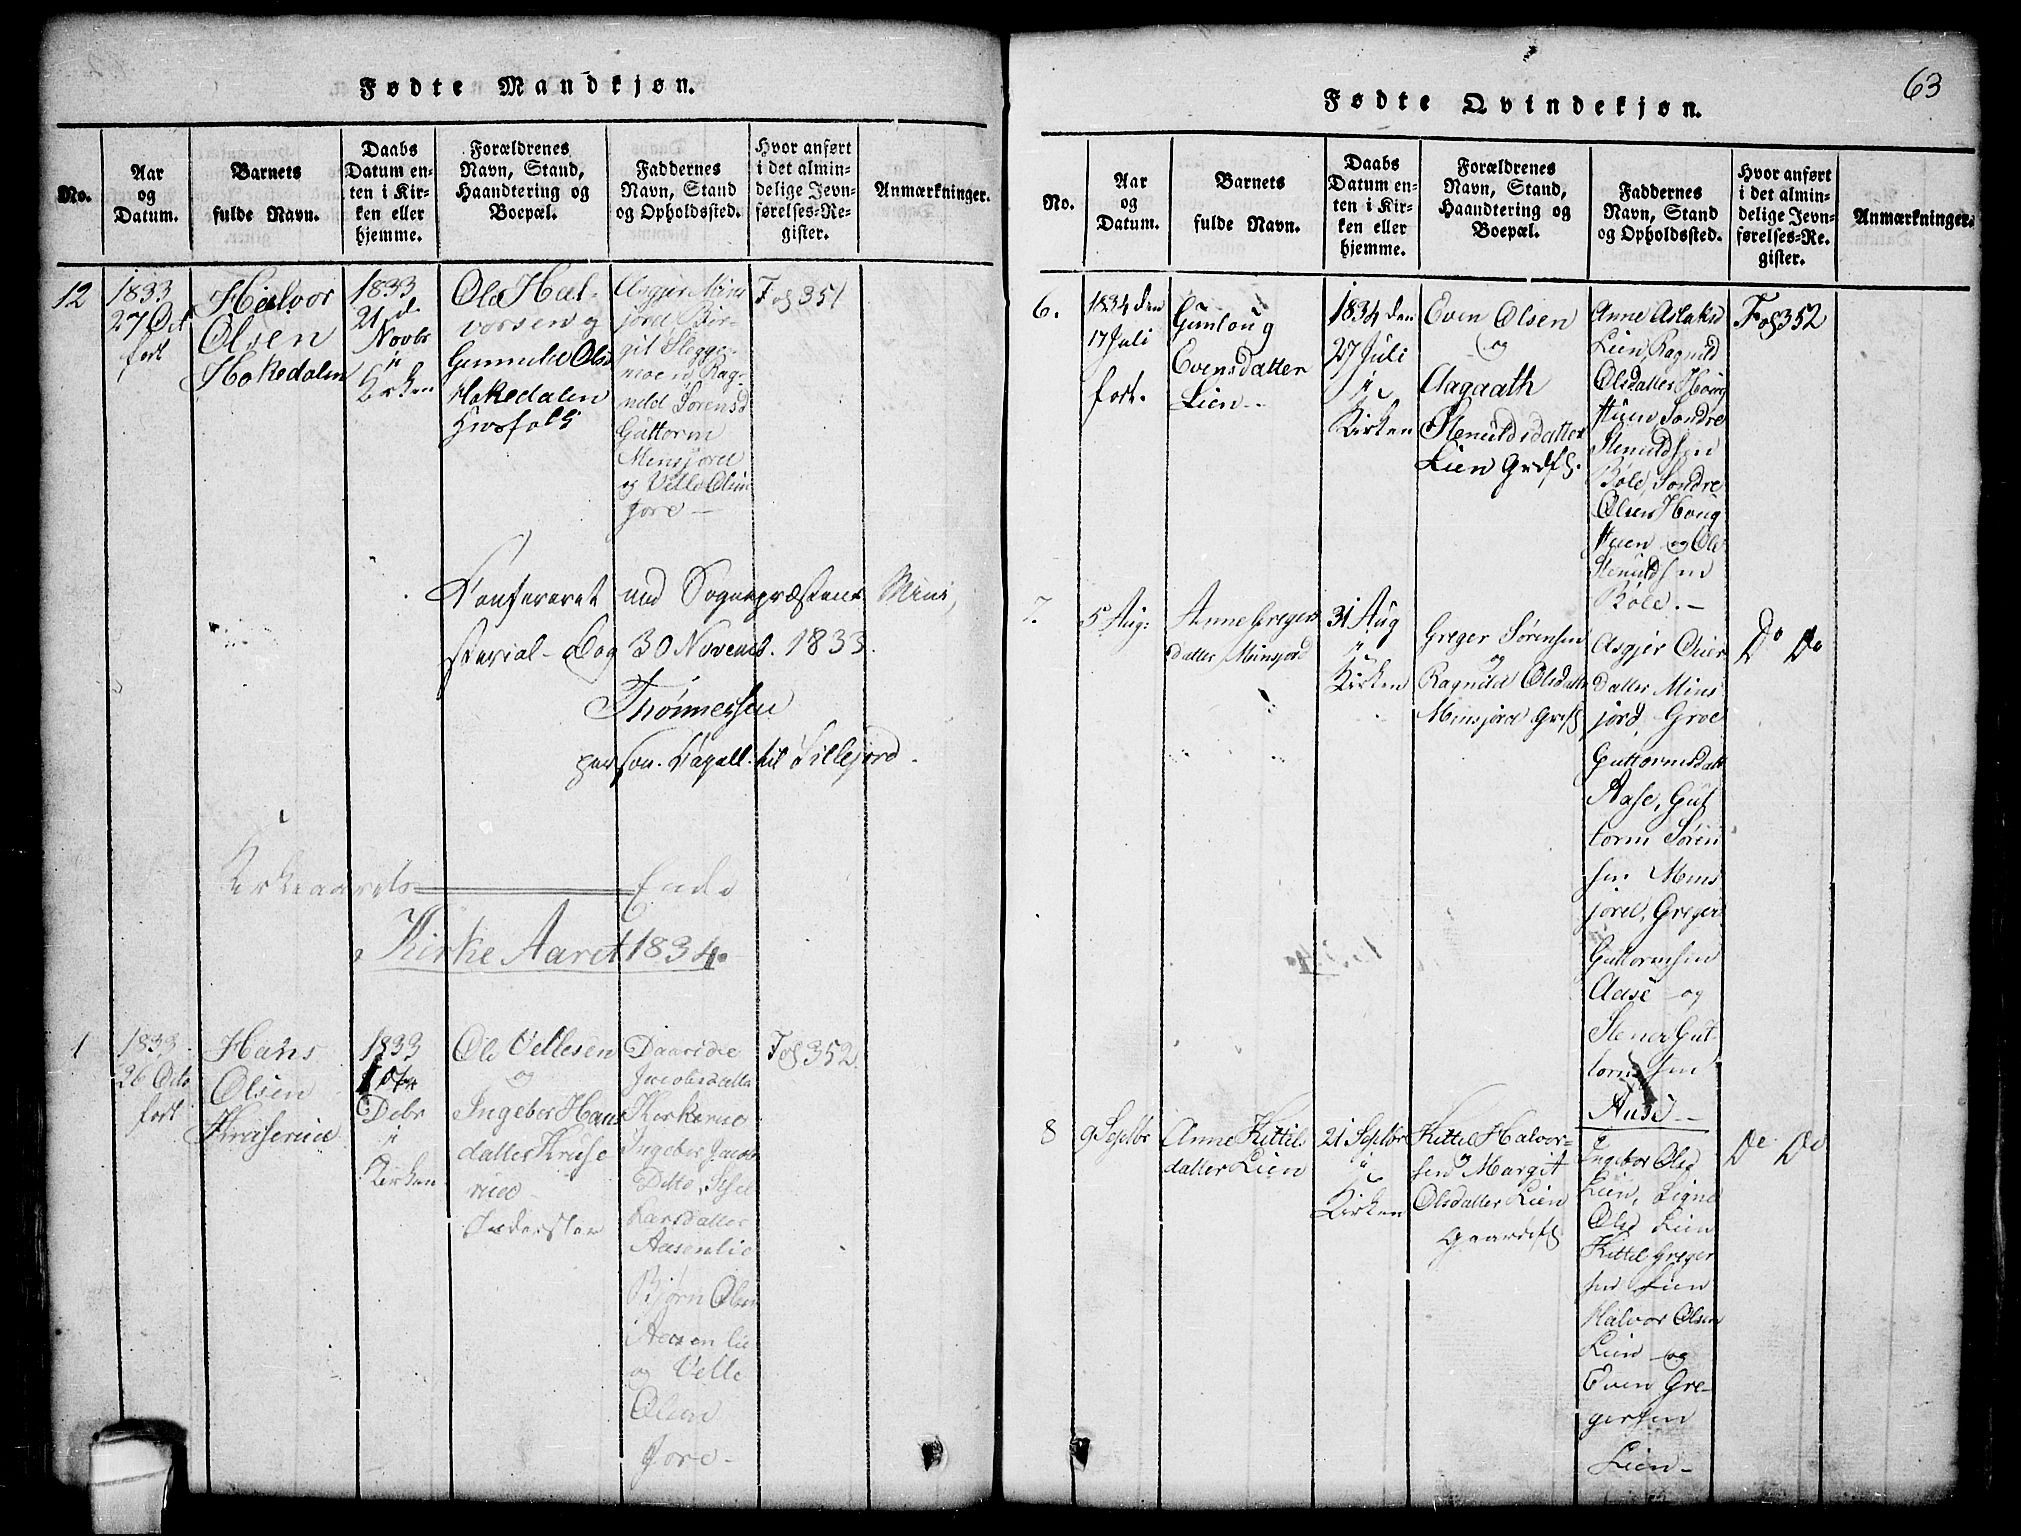 Fødte Mandkjøn.
No.
Aar
og
Datum.
Barnets
fulde Navn.
Daabs
Datum en-
ten i Kir-
ken eller
hjemme.
Forældrenes
Navn, Stand,
Haandtering og
Boepæl.
Faddernes
Navn, Stand
og Opholdssted.
Hvor anført
i det almin-
delige Jevn-
førelses-Re-
gister.
Anmærkninger.
12
1833
27 Oct
født
Halvor
Olsen
Hokedalen
1833
21 d
Novbr
i
Kirken
Ola Hal-
vorsen og
Gunnild Olsd
Hokedalen
Huusfolk
Asgjer Mins
jord, Bir-
git Skogge-
moen, Rag-
nild Sørensd
Guttorm
Minsjord
og Vetle Olsen
Jore —
Fol 351
Confereret med Sognepræstens Mini,
sterial-Bog 30 Novemb. 1833.
Thønnessen
person. Capell. til Sillejord.
Kirkeaarets Ende
Kirke Aaret 1834.
1
1833
26 Octo
født
Hans
Olsen
Kruserud
1833
Debr
i
Kirken
Ole Vetlesen
og
Ingebor Hans
datter Kruse
rud
Inderster
Daaridie
Jacobsdatte
Ingebor Jacob
Ditto, Sisel
Larsdatter
Aasenlie
Bjørn Olsen
Aasenlie
og Vetle
Olsen
Jore —
Fol 352
63
Fødte Qvindekjøn.
No.
Aar
og
Datum.
Barnets
fulde Navn.
Daabs
Datum en-
ten i Kir-
ken eller
hjemme.
Forældrenes
Navn, Stand,
Haandtering og
Boepæl.
Faddernes
Navn, Stand
og Opholdssted.
Hvor anført
i det almin-
delige Jevn-
førelses-Re-
gister.
Anmærkninger.
6.
1834 den
17 Juli
født.
Gunloug
Evensdatter
Lien —
1834 den
27 Juli
i
Kirken
Even Olsen
og
Aagaath
Stenuldsdatter
Lien Grdf.
Anne Aslaksd
Lien, Ragnild
Olsdatter Houg
Tuen, Sondre
Stenuldsen
Bøle, Sondre
Olsen Houg
Tuen og Ole
Stenuldsen
Bøle. —
Fol 352
7.
5 Aug:
Anne Gregers
datter Minsjord
31 Aug
i
Kirken
Greger Sørensen
og
Ragnild Olsdatter
Minsjord Grdf
Asgjer Oluer
datter Mins
jord, Groe
Guttormsdatt
Aase, Gut
torm Søren
sen Mins
jord, Greger
Guttormsen
Aase og
Stener Gut
tormsen
Aase —
Do Do
8
9 Septbr
Anne Kittils
datter Lien
21 Septbr
i
Kirken
Kittil Halvor-
sen og Margit
Olsdatter Lien
Gaardf
Ingebor Olsd
Lien, Signe
Olsd Lien
Kittil Greger
sen Lien
Halvor Olsen
Lien og
Even Gre-
gersen
Lien —
Do Do